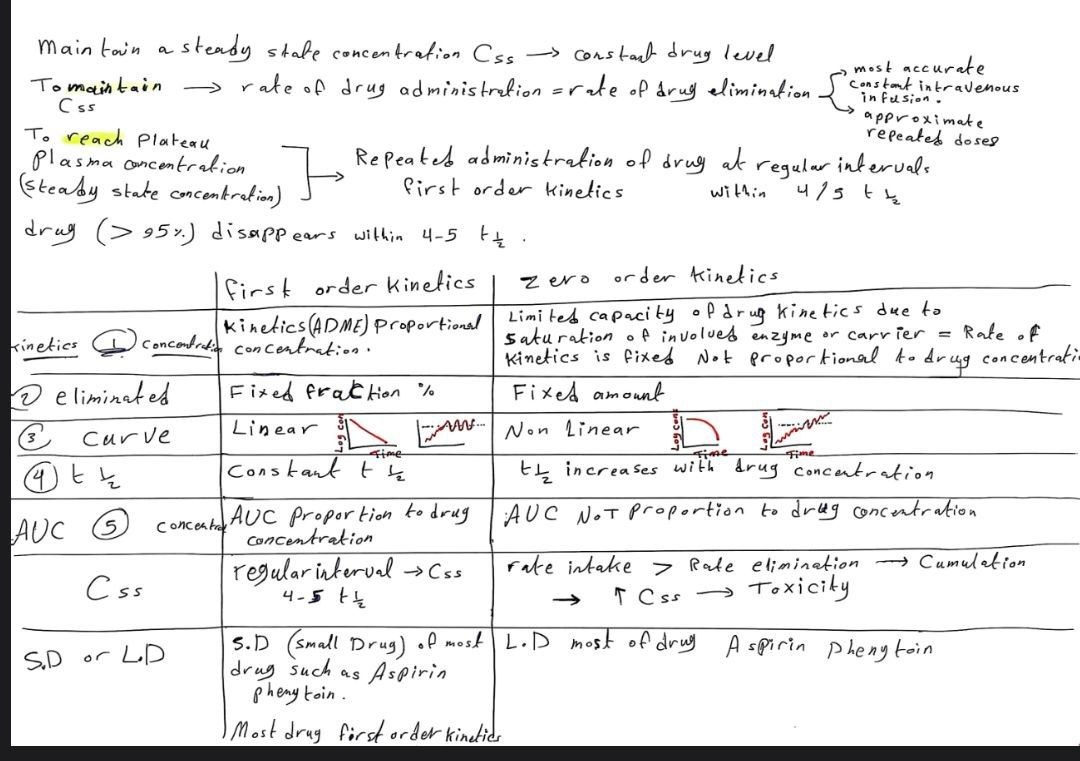 Maintain a steady state concentration Css → constant drug level
To maintain → rate of drug administration = rate of drug elimination
Css
most accurate
constant intravenous
infusion.
approximate
repeated doses
To reach Plateau
Plasma concentration
(steady state concentration)
Repeated administration of drug at regular intervals
first order kinetics within 4/5 t ½
drug (> 95%) disappears within 4-5 t½.
first order kinetics
zero order kinetics
kinetics ① concentration
kinetics (ADME) Proportional
concentration.
Limited capacity of drug kinetics due to
saturation of involved enzyme or carrier = Rate of
kinetics is fixed Not proportional to drug concentrati
② eliminated
Fixed fraction %
Fixed amount
③ curve
Linear
Log Con
Time
Non Linear
Log Con
Time
Log Con
Time
④ t ½
Constant t ½
t½ increases with drug concentration
AUC ⑤ concentra
AUC proportion to drug
concentration
AUC NOT proportion to drug concentration
Css
regular interval → Css
4-5 t½
rate intake > Rate elimination → Cumulation
→ ↑ Css → Toxicity
S.D or L.D
S.D (small Drug) of most
drug such as Aspirin
phenytoin.
Most drug first order kinetics
L.D most of drug Aspirin phenytoin